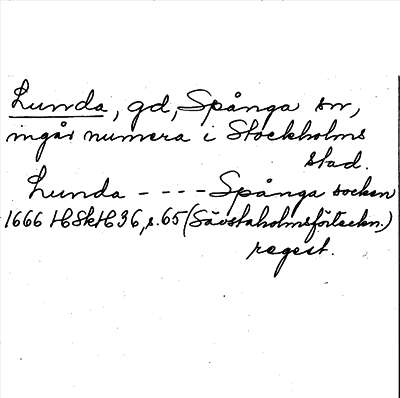 Lunda, gd, Spånga sn,
ingår numera i Stockholms
stad.
Lunda - - - - Spånga socken
1666 HSkH 36, s. 65 (Sävstaholmsförteckn.)
regest.